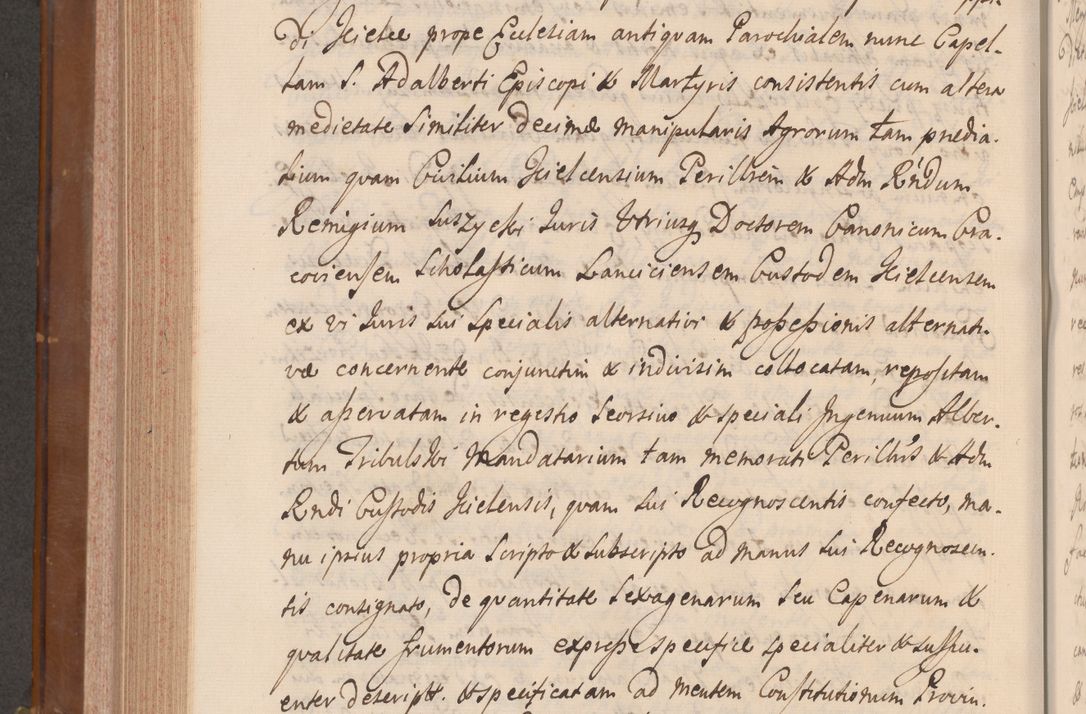 di Kielce prope Ecclesiam antiquam Parochialem nunc Capel-
lam S. Adalberti Episcopi & Martyris consistentis cum altera
medietate Similiter decimæ manipularis Agrorum tam prædia-
lium quam Civilium Kielcensium Perillrem & Adm Rńdum
Remigium Suszycki Juris Utriusq Doctorem Canonicum Cra-
coviensem Scholasticum Lanciciensem Custodem Kielcensem
ex vi Juris sui Specialis alternativi & possessionis alternati-
væ concernente conjunctim & indivisim collocatam, repositam
& asservatam in regestro Seorsivo & speciali Ingenuum Alber-
tum Tribulski Mandatarium tam memorati Perillris & Adm
Rndi Custodis Kielensis, quam Sui Recognoscentis confecto, ma-
nu ipsius propria Scripto & Subscripto ad manus Sui Recognoscen-
tis consignato, de quantitate Sexagenarum Seu Capenarum &
qualitate frumentorum expresse specifice specialiter & suffici-
enter descript. & specificatam ad mentem Constitutionum Provin-